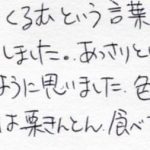 くるむという言葉
しました。あっさりと
ように思いました.色
は栗きんとん.食べ